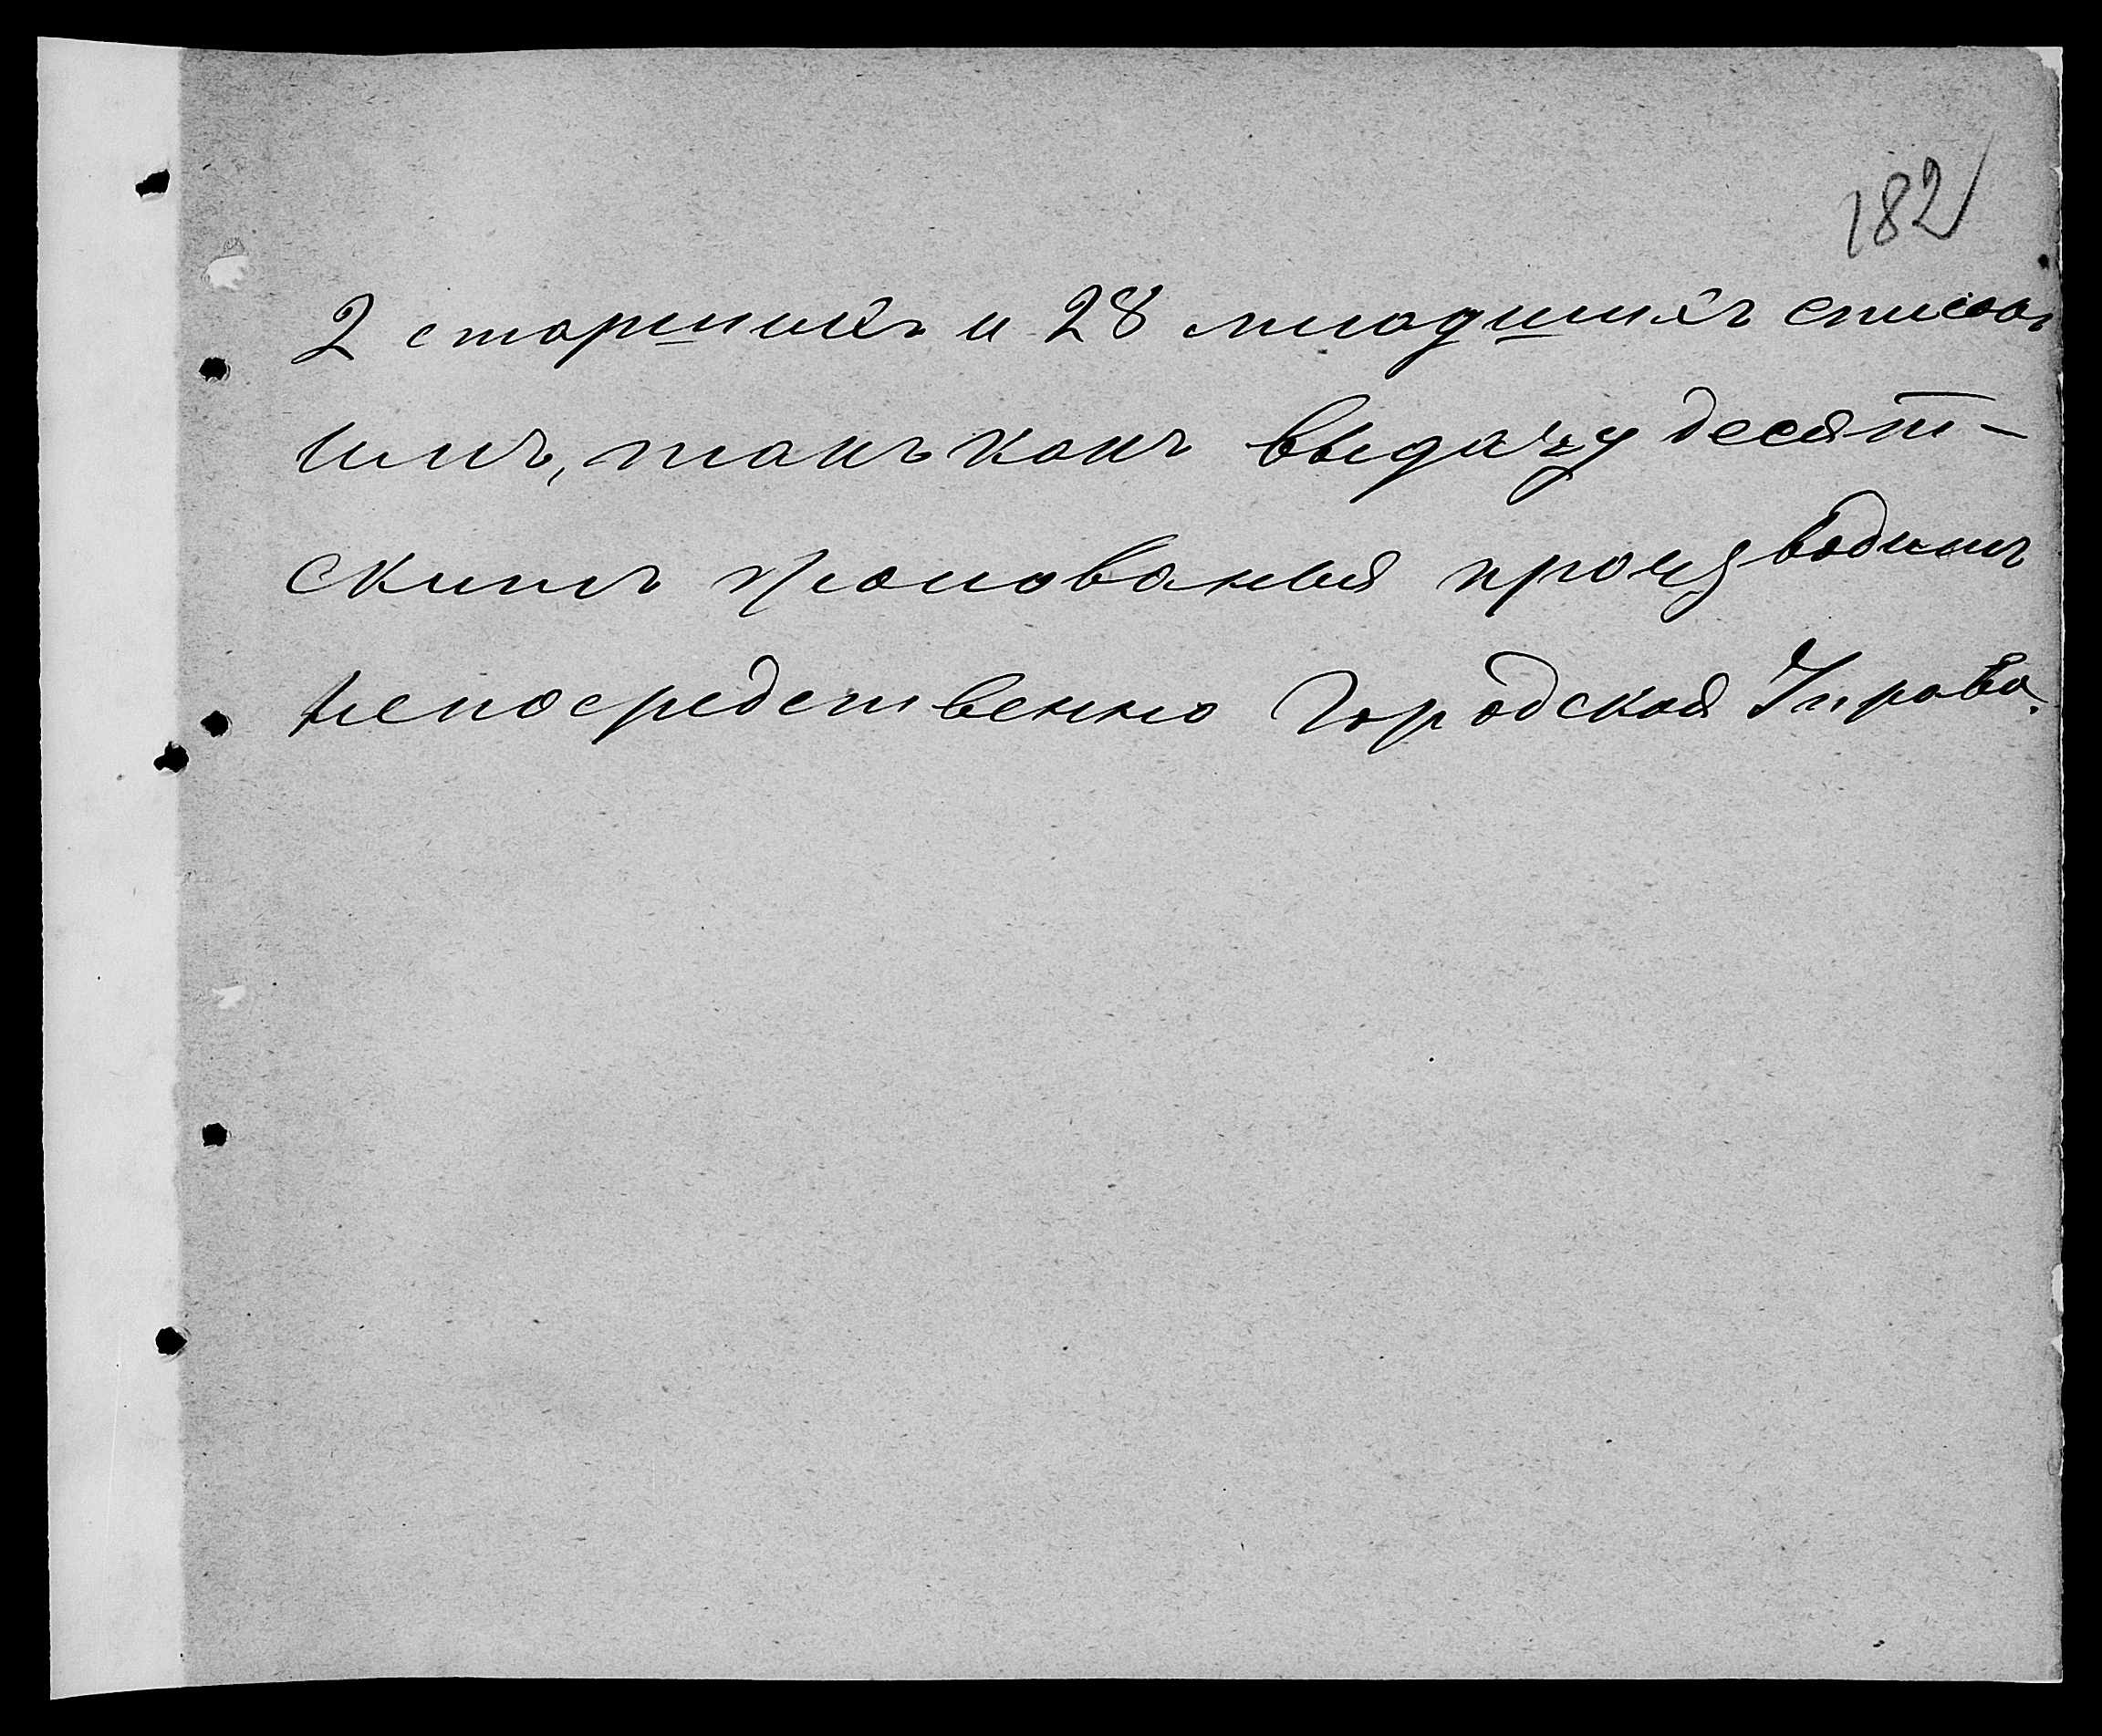 182
2 старшихъ и 28 младшихъ
имъ, такъ какъ выдачу десят-
скимъ жалованья производитъ
непосредственно Городская Управа.